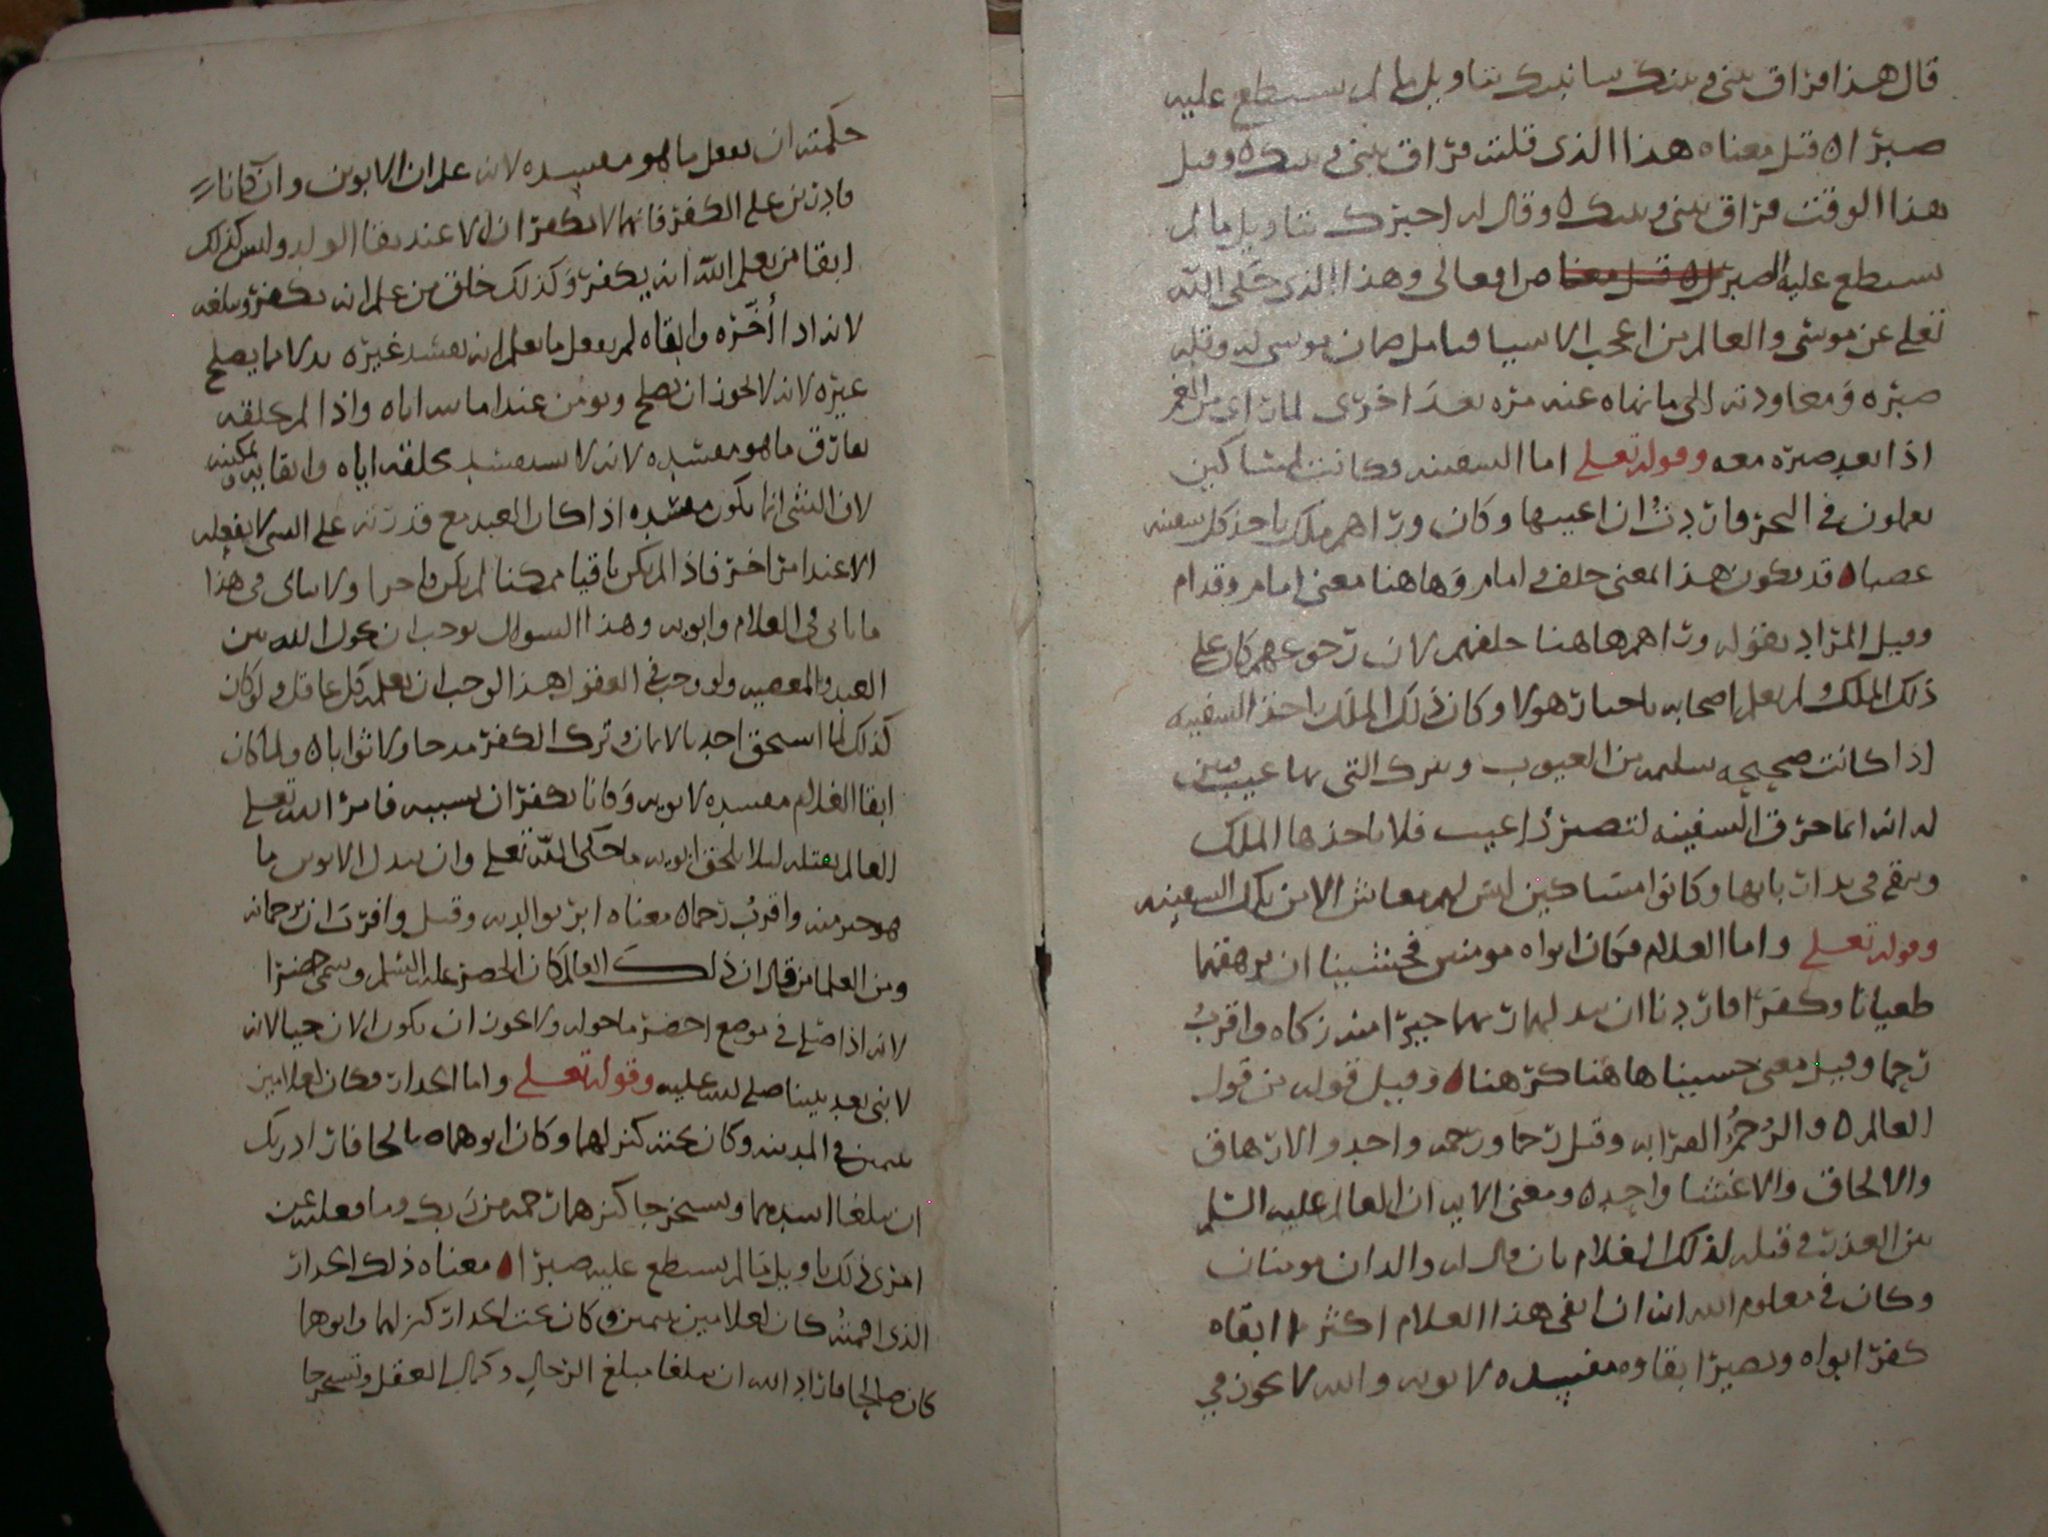 قال هذا فراق بيني وبينك سانبيك بتاويل ما لم تستطع عليه
صبرا ه قيل معناه هذا الذي قلت فراق بيني وبينك ه وقيل
هذا الوقت فراق بيني وبينك ه وقال له اخبرك بتاويل ما لم
تستطع عليه الصبر من افعالي وهذا الذي حكى الله
تعلى عن موسى والعالم من اعجب الاشيا فتامل ضمان موسى له وقله
صبره ومعاودته الى ما نهاه عنه مره بعد اخرى لما راى من
اذا بعد صبره معه وقوله تعلى اما السفينه فكانت لمساكين
يعملون في البحر فاردت ان اعيبها وكان وراهم ملك ياخذ كل سفينه
غصبا ه قد يكون هذا المعنى خلف وامام وهاهنا معنى امام وقدام
وقيل المراد بقوله وراهم هاهنا خلفهم لان رجوعهم كان على
ذلك الملك ولم يعلم اصحابه باخبار هولا وكان ذلك الملك ياخذ السفينه
اذا كانت صحيحه سليمه من العيوب ويترك التي بها عيب فبين
له انه انما خرق السفينه لتصير ذا عيب فلا ياخذها الملك
ويبقى في يد اربابها وكانوا مساكين ليس لهم معاش الا من تلك السفينه
وقوله تعلى واما الغلام فكان ابواه مومنين فخشينا ان يرهقهما
طغيانا وكفرا فاردنا ان يبدلهما ربهما خيرا منه زكاه واقرب
رحما وقيل معنى خشينا هاهنا كرهنا ه وقيل قوله من قول
العالم ه والرحم القرابه وقيل رحما ورحمه واحد والارهاق
والالحاق والاغشا واحد ه ومعنى الايه ان العالم عليه السلم
بين العذر في قتله لذلك الغلام بان قال له والدان مومنان
وكان في معلوم الله انه ان ابقى هذا الغلام اكثر ابقاه
كفر ابواه ويصير ابقاوه مفسده لابويه والله لا يجوز في
حكمته ان يفعل ما هو مفسده لانه علم ان الابوين وان كانا
قادرين على الكفر فانهما لا يكفران الا عند بقا الولد وليس كذلك
ابقا من يعلم الله انه يكفر وكذلك خلق من علم انه يكفر وتبلغه
لانه اذا اخره وابقاه لم يفعل ما يعلم انه يفسد غيره بدلا مما يصلح
غيره لانه لا يجوز ان يصلح ويومن عند اماتته اياه واذا لم يخلقه
يفارق ما هو مفسده لانه لا يستفسد بخلقه اياه وابقايه وتمكينه
لان الشي انما يكون مفسده اذا كان العبد مع قدرته على الشي لا يفعله
الا عند امر اخر فاذا لم يكن باقيا ممكنا لم يكن فاجرا ولا يتاتى في هذا
ما ياتي في الغلام وابويه وهذا السوال يوجب ان يحول الله بين
العبد والمعصيه ولو وجب في العقول هذا لوجب ان يعلمه كل عاقل ولو كان
كذلك لما استحق احد بالايمان وترك الكفر مدحا ولا ثوابا ه ولما كان
ابقا الغلام مفسده لابويه وكانا يكفران بسببه فامر الله تعلى
العالم بقتله ليلا يلحق ابويه ما حكى الله تعلى وان يبدل الابوين ما
هو خير منه واقرب رحما ه معناه ابر بوالديه وقيل واقرب ان يرحمانه
ومن العلما من قال ان ذلك العالم كان الخضر عليه السلم وسمي خضرا
لانه اذا صلى في موضع اخضر ما حوله ولا يجوز ان يكون الان حيا لانه
لا نبي بعد نبينا صلى الله عليه وقوله تعلى واما الجدار فكان لغلامين
يتيمين في المدينه وكان تحته كنز لهما وكان ابوهما صالحا فاراد ربك
ان يبلغا اشدهما ويستخرجا كنزهما رحمه من ربك وما فعلته عن
امري ذلك تاويل ما لم تستطع عليه صبرا ه معناه ذلك الجدار
الذي اقمته كان لغلامين يتيمين وكان تحت الجدار كنز لهما وابوهما
كان صالحا فاراد الله ان يبلغا مبلغ الرجال وكمال العقل ويستخرجا